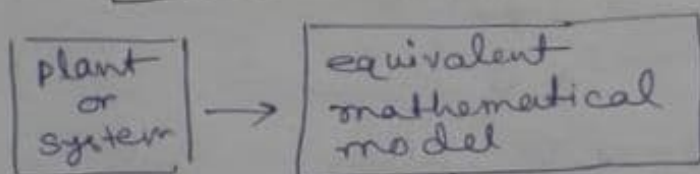 plant
or
system
equivalent
mathematical
model